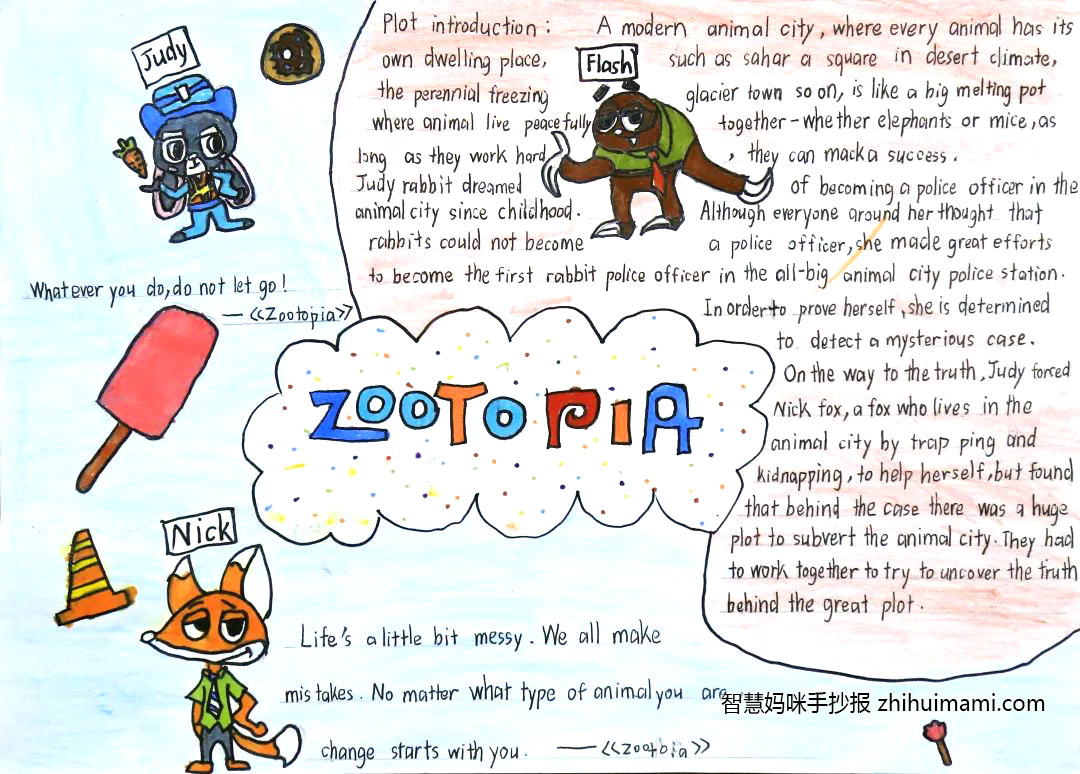 Judy
Plot introduction: A modern animal city, where every animal has its
own dwelling place, such as sahar a square in desert climate,
Flash
the perennial freezing glacier town so on, is like a big melting pot
where animal live peacefully together - whether elephants or mice, as
long as they work hard, they can mack a success.
Judy rabbit dreamed of becoming a police officer in the
animal city since childhood. Although everyone around her thought that
rabbits could not become a police officer, she made great efforts
to become the first rabbit police officer in the all-big animal city police station.
In orderto prove herself, she is determined
to detect a mysterious case.
On the way to the truth, Judy forced
Nick fox, a fox who lives in the
animal city by trap ping and
kidnapping, to help herself, but found
that behind the case there was a huge
plot to subvert the animal city. They had
to work together to try to uncover the truth
behind the great plot.
Whatever you do, do not let go!
—《Zootopia》
ZOOTOPIA
Nick
Life's a little bit messy. We all make
mistakes. No matter what type of animal you are
change starts with you. —《Zootopia》
智慧妈咪手抄报 zhihuimami.com